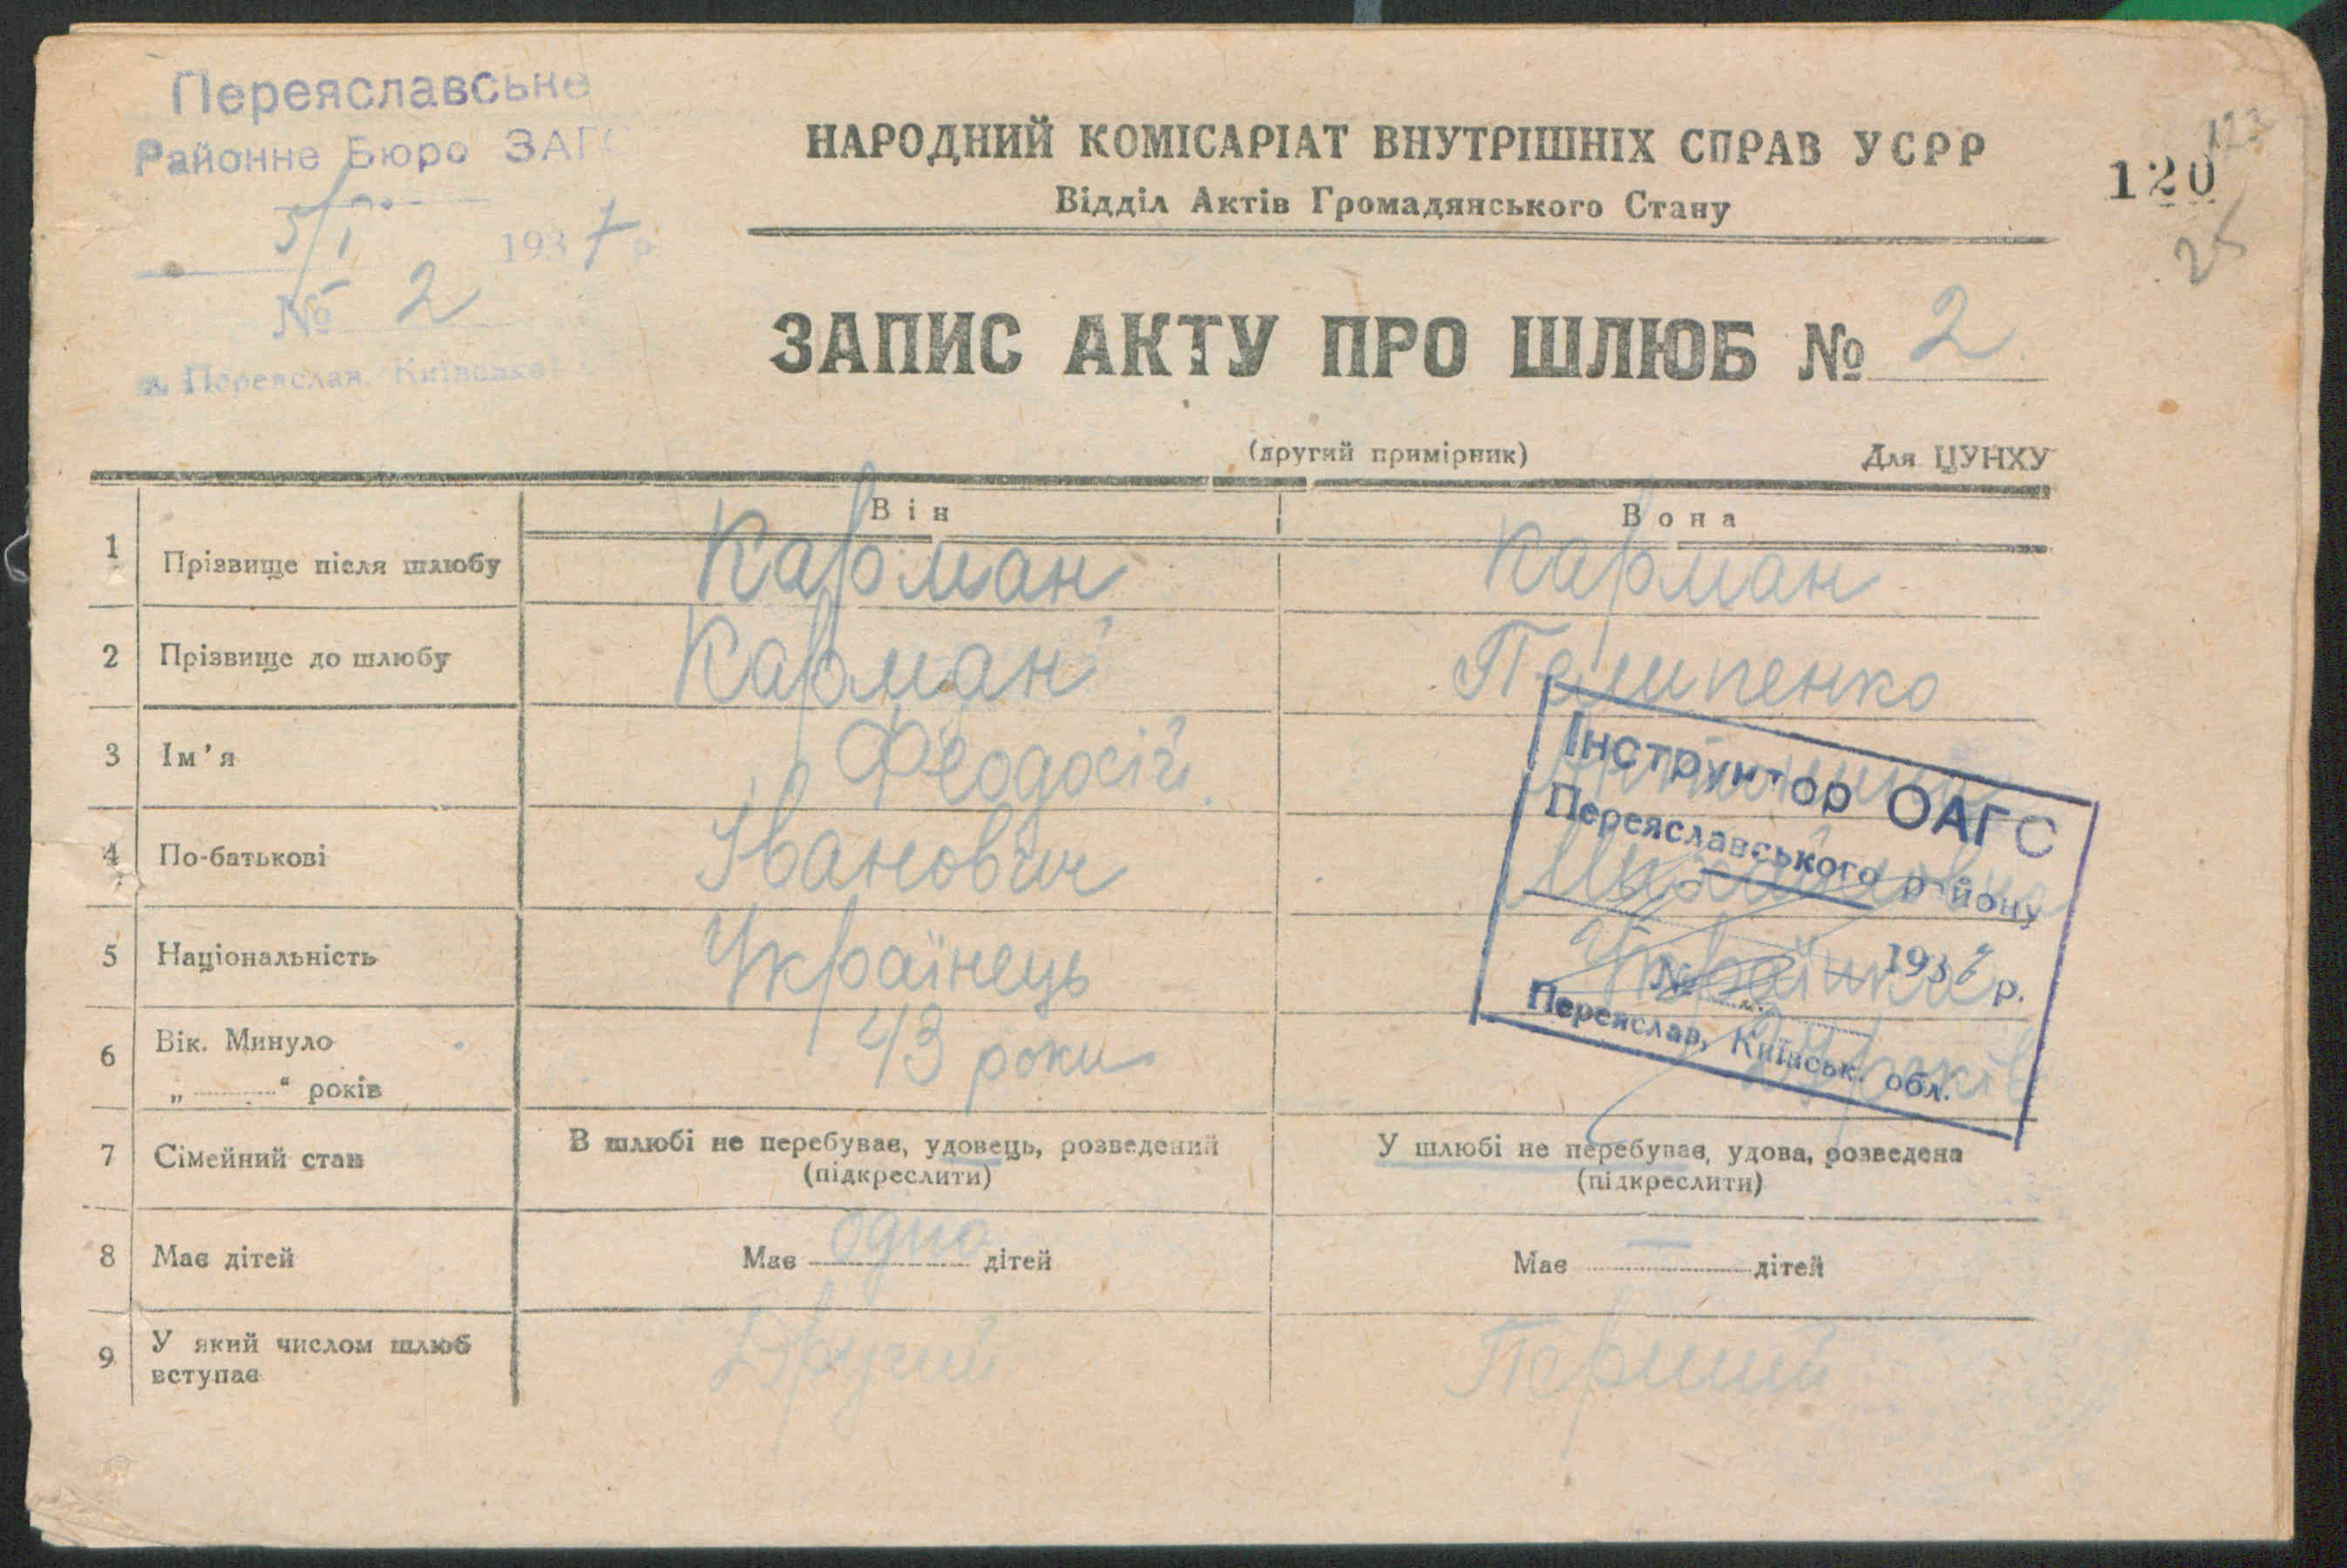 Переяславське
Районне Бюро ЗАГС
5/I 1937 р
№ 2
м. Переяслав, Київської
НАРОДНИЙ КОМІСАРІАТ ВНУТРІШНІХ СПРАВ УСРР
Відділ Актів Громадянського Стану
120
25
ЗАПИС АКТУ ПРО ШЛЮБ № 2
(другий примірник) Для ЦУНХУ
Він Вона
1 Прізвище після шлюбу Карман Карман
2 Прізвище до шлюбу Карман Пилипенко
3 Ім'я Феодосій
4 По-батькові Іванович Михайловна
5 Національність Українець Українка
6 Вік. Минуло
„ “ років 43 роки років
Інструктор ОАГС
Переяславського району
№ 193 р.
Переяслав, Київськ. обл.
7 Сімейний стан В шлюбі не перебуває, удовець, розведений У шлюбі не перебуває, удова, розведена
(підкреслити) (підкреслити)
8 Має дітей Має одно дітей Має — дітей
9 У який числом шлюб
вступає Другий Перший